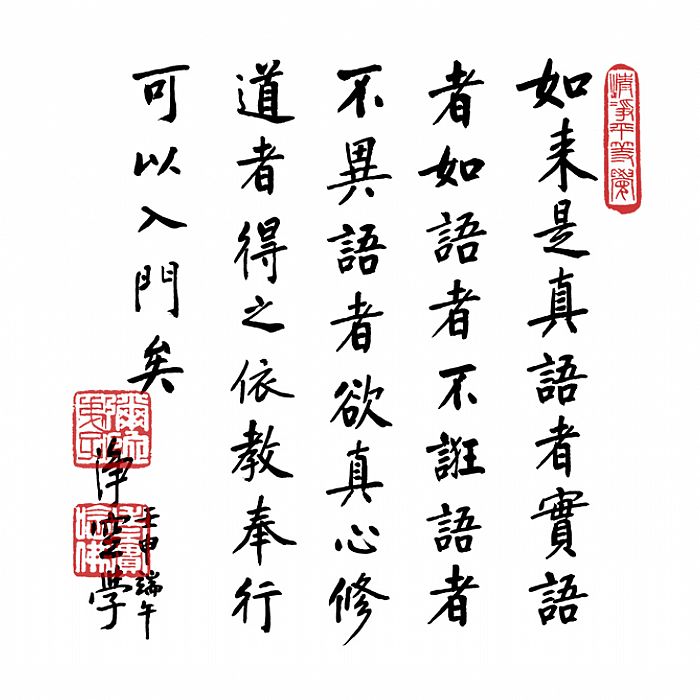 清淨平等覺
如来是真語者實語
者如語者不誑語者
不異語者欲真心修
道者得之依教奉行
可以入門矣
壬申端午
净空学